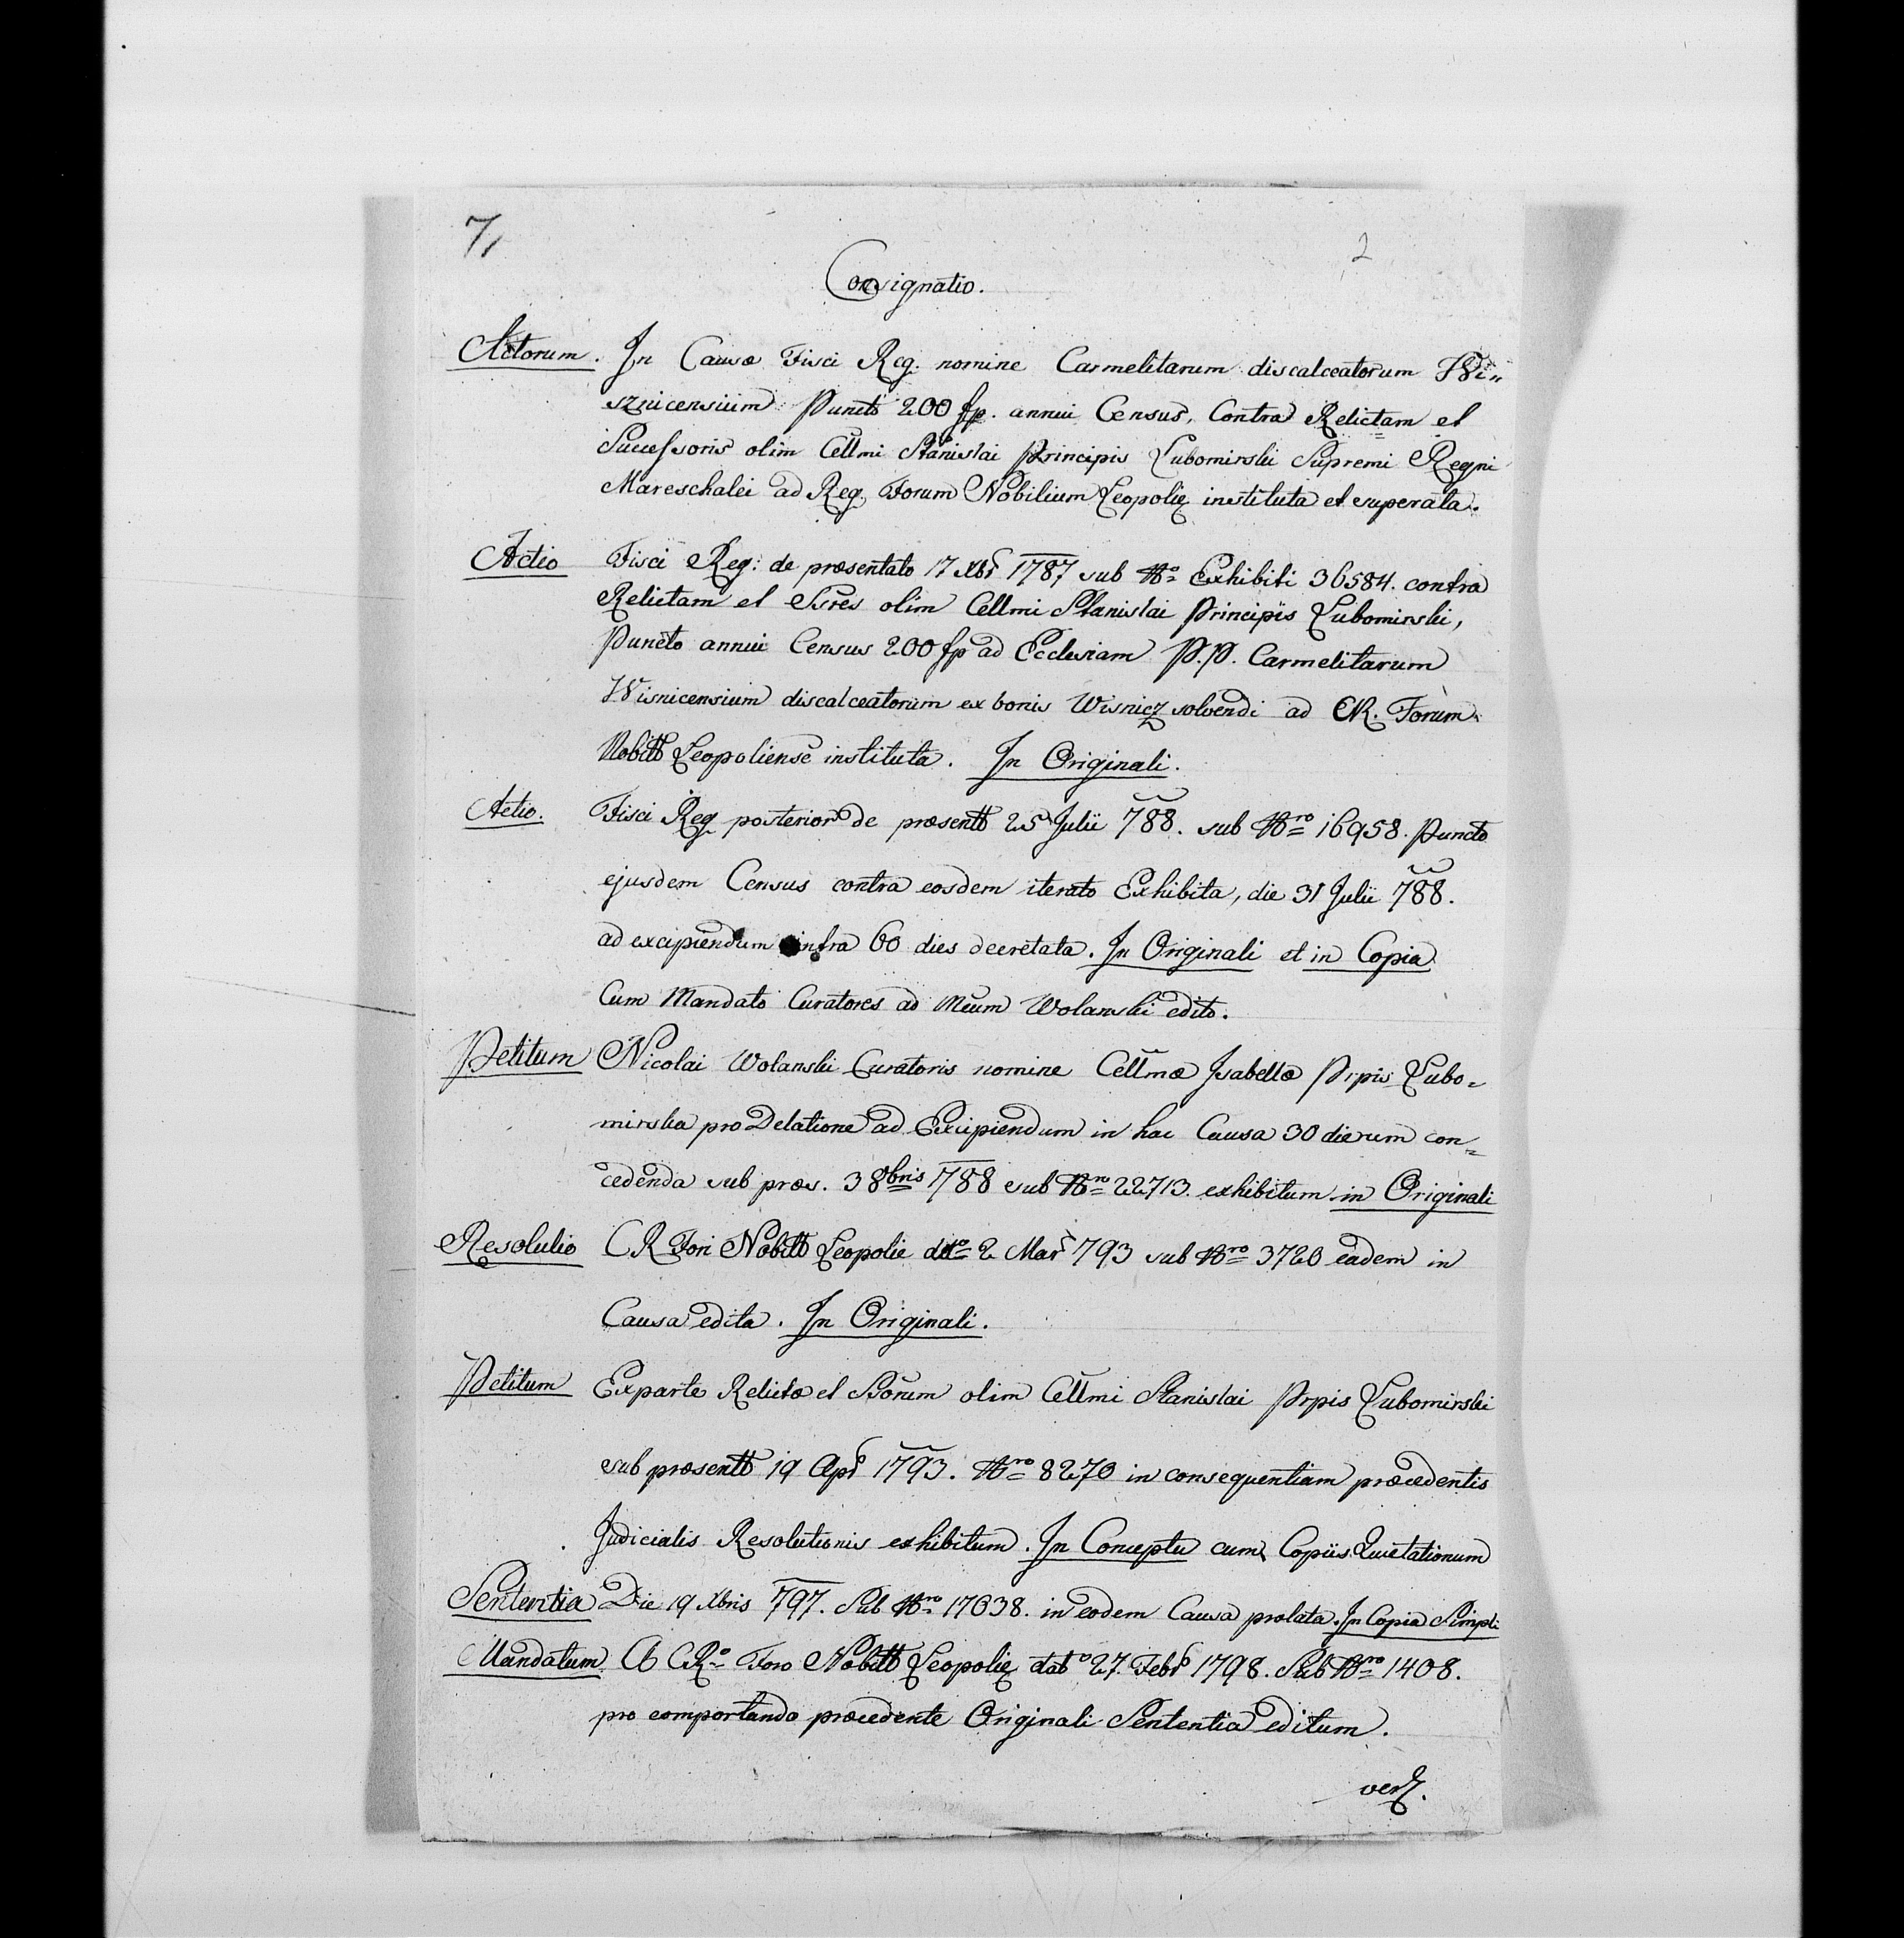 7,
2
Consignatio.
Actorum. In Causa Fisci Reg. nomine Carmelitarum discalceatorum Wi„
sznicensium Puncto 200 fp. annui Census, Contra Relictam et
Successoris olim Cellmi Stanislai Principis Lubomirski Supremi Regni
Mareschalci ad Reg. Forum Nobilium Leopolię instituta et superata.
Actio Fisci Reg: de præsentato 17 Xbr 1787 sub Nro Exhibiti 36584. contra
Relictam et Ssres olim Cellmi Stanislai Principis Lubomirski,
Puncto annui Census 200 fp ad Ecclesiam P.P. Carmelitarum
Wisnicensium discalceatorum ex bonis Wisnicz solvendi ad CR. Forum
Nobill Leopoliense instituta. In Originali.
Actio. Fisci Reg posterior de præsentt 25 Julii 788. sub Nro 16958. Puncto
ejusdem Census contra eosdem iterato Exhibita, die 31 Julii 788.
ad excipiendum infra 60 dies decretata. In Originali et in Copia
Cum Mandato Curatores ad Meum Wolanski edito.
Petitum Nicolai Wolanski Curatoris nomine Cellmæ Isabellæ Prpis Lubo-
mirska pro Delatione ad Excipiendum in hac Causa 30 dierum con-
cedenda sub præs. 3 8bris 788 sub Nro 22713. exhibitum in Originali
Resolutio CR Fori Nobill Leopolie dtto 2 Mar 793 sub Nro 3720 eadem in
Causa edita. In Originali.
Petitum Ex parte Relictæ et Ssorum olim Cellmi Stanislai Prpis Lubomirski
sub præsentt 19 Apr 1793. Nro 8270 in consequentiam præcedentis
Judicialis Resolutionis exhibitum. In Conceptu cum Copiis Quietationum
Sententia Die 19 Xbris 797. Sub Nro 17038. in eodem Causa prolata. In Copia Simpli
Mandatum A CRo Foro Nobill Leopolię dato 27. Febr 1798. Sub Nro 1408.
pro comportanda præcedente Originali Sententia editum.